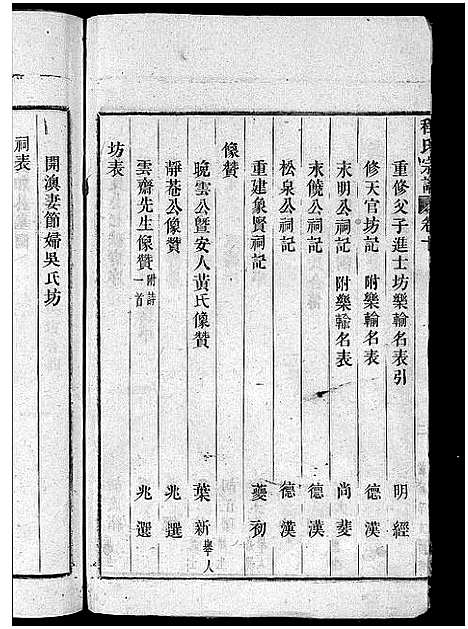 程氏宗譜 卷十
重修父子進士坊樂輸名表引 明經
修天官坊記 附樂輸名表 德漢
末明公祠記 附樂輸名表 尚斐
末饒公祠記 德漢
松泉公祠記 德漢
重建象賢祠記 夔初
像贊
晚雲公暨安人黃氏像贊 葉新舉人
靜菴公像贊 兆選
雲齋先生像贊附詩一首 兆選
坊表
開澳妻節婦吳氏坊
祠表